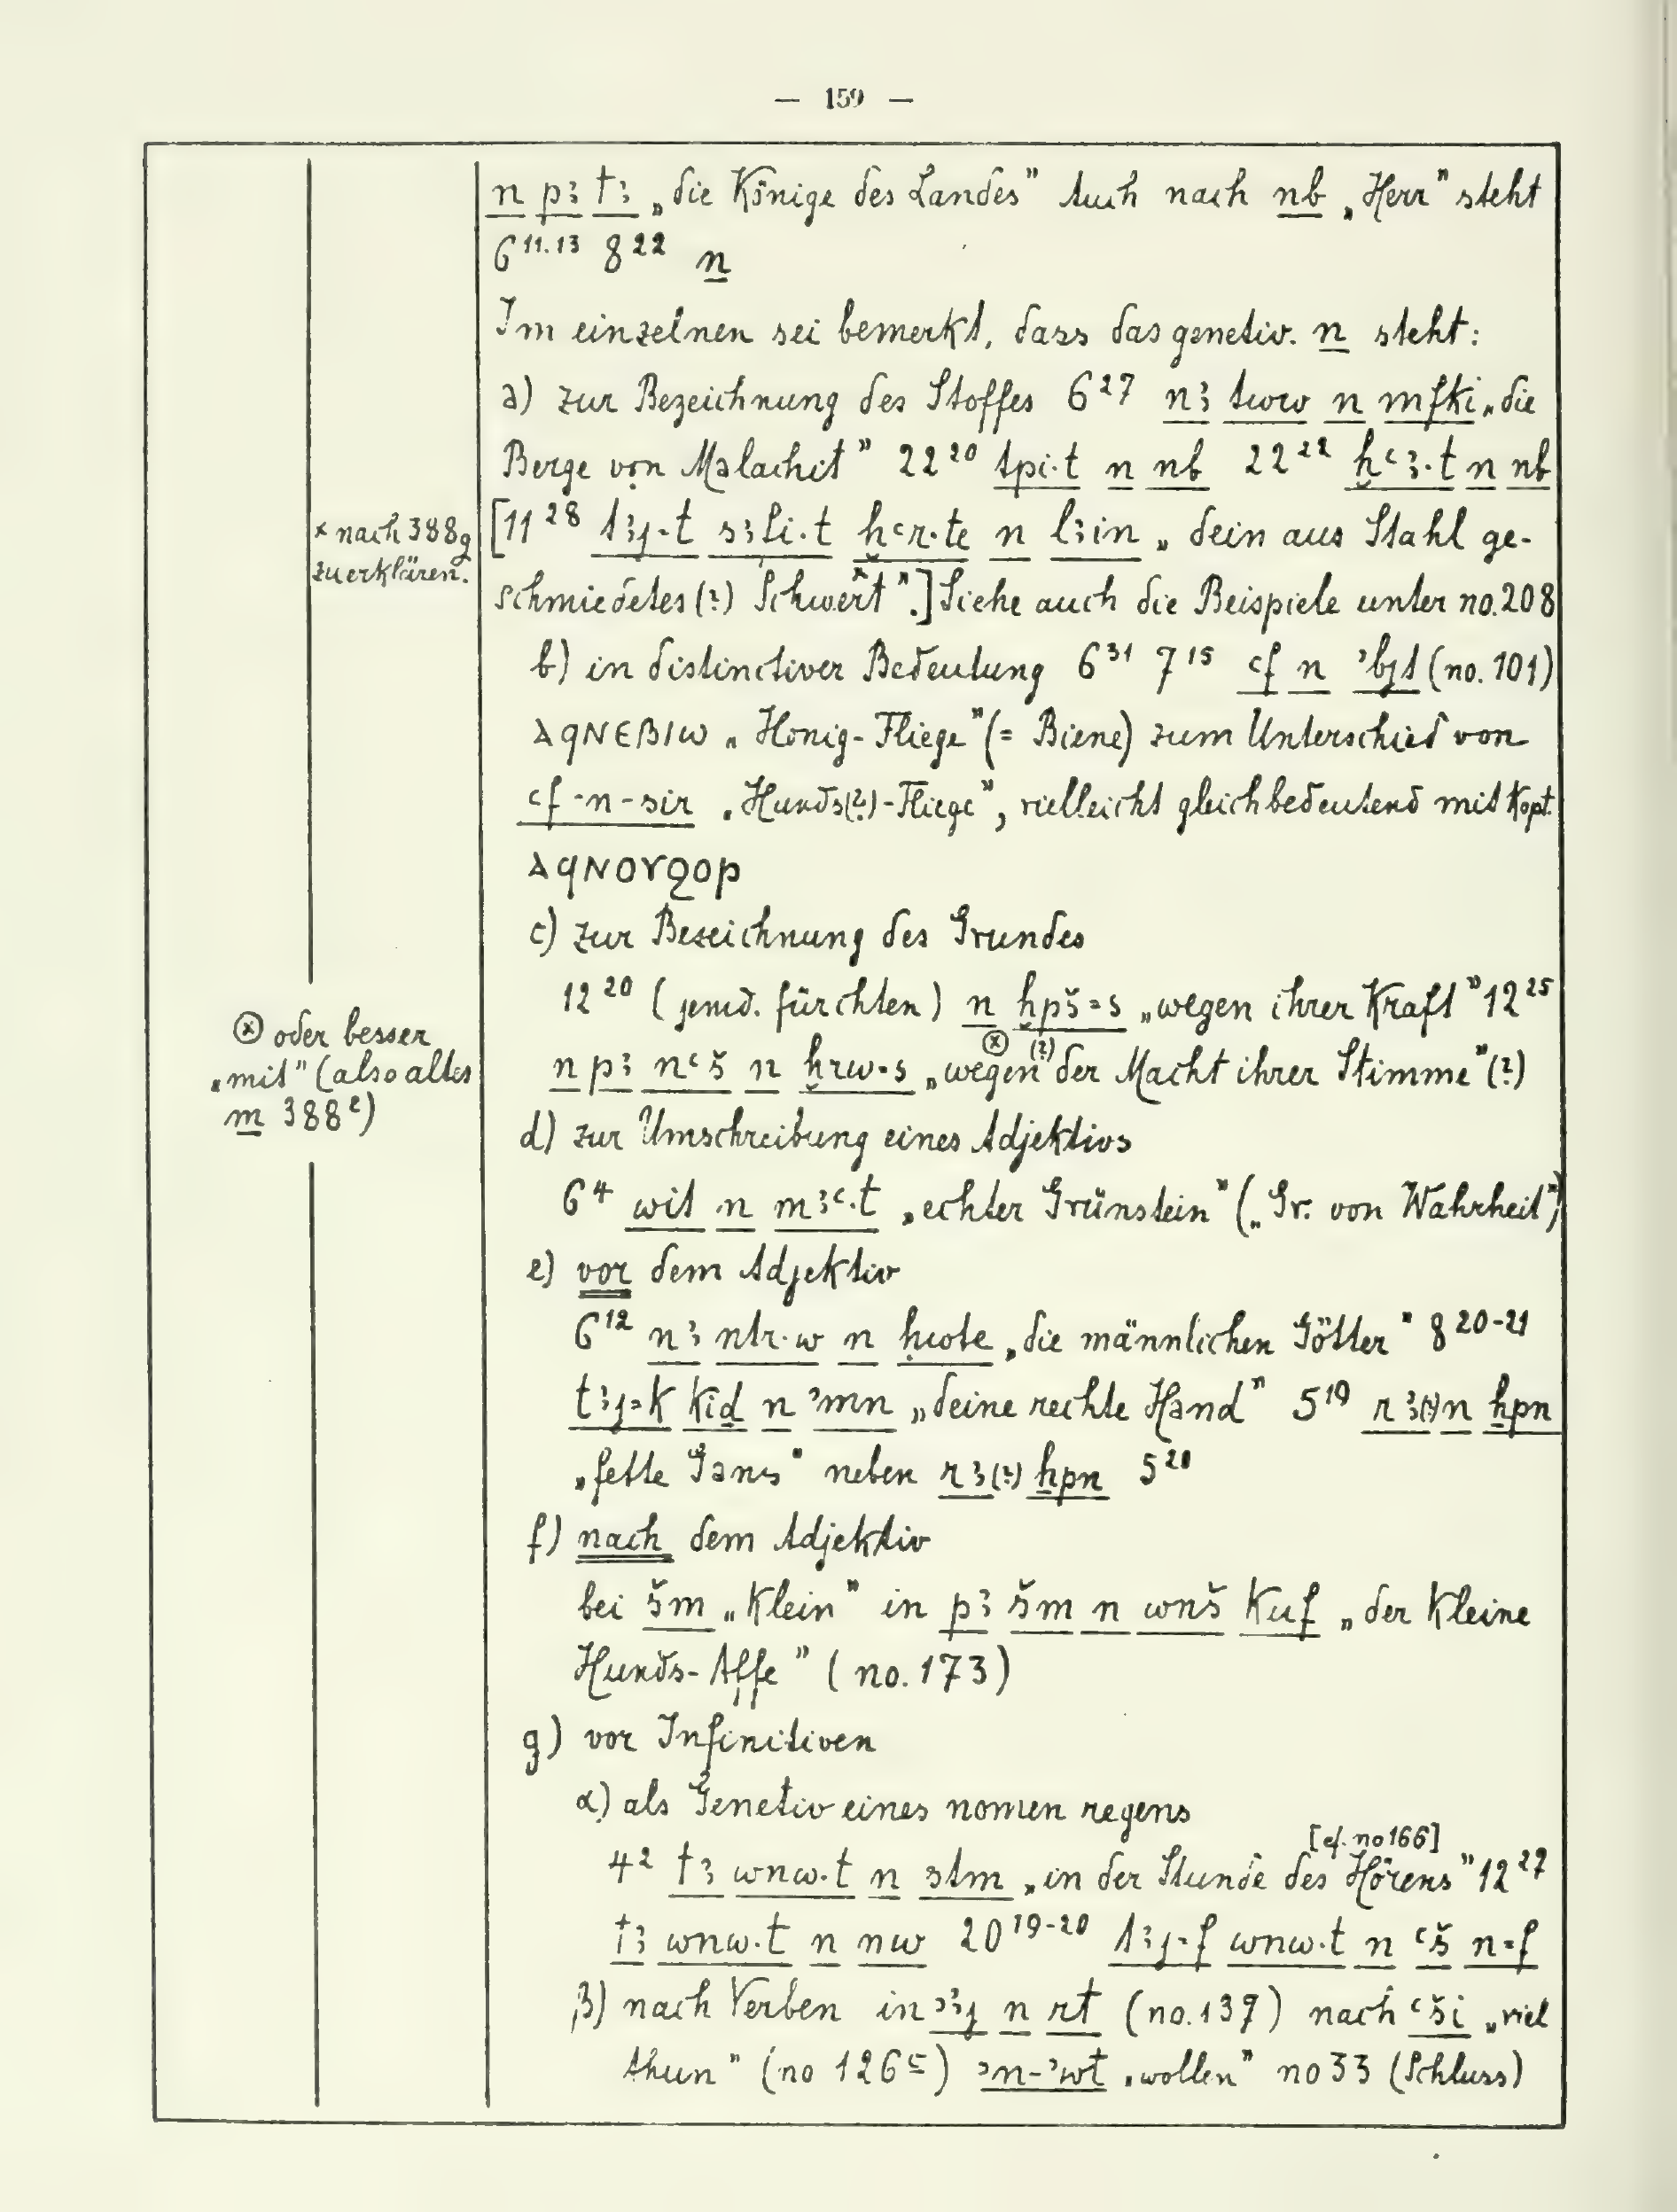 — 159 —
n pꜣ tꜣ „die Könige des Landes” Auch nach nb „Herr” steht
6 11.13 8 22 n
Im einzelnen sei bemerkt, dass das genetiv. n steht:
a) zur Bezeichnung des Stoffes 6 27 nꜣ tww n mfki „die
Berge von Malachit” 22 20 tpi·t n nb 22 22 ḫꜥꜣ·t n nb
× nach 388g
zu erklären.
[11 28 tꜣj·t sꜣfi·t ḫꜥr·te n lꜣin „dein aus Stahl ge-
schmiedetes (?) Schwert× ”.] Siehe auch die Beispiele unter no. 208
b) in distinctiver Bedeutung 6 31 7 15 ꜥf n ʾbjt (no. 101)
ⲁϥⲛⲉⲃⲓⲱ „Honig-Fliege” (= Biene) zum Unterschied von
ꜥf-n-sir „Hunds(?)-Fliege”, vielleicht gleichbedeutend mit Kopt.
ⲁϥⲛⲟⲩϩⲟⲣ
c) zur Bezeichnung des Grundes
12 20 (jemd. fürchten) n ḫpš=s „wegen ihrer Kraft” 12 25
⊗ oder besser
„mit” (also altes
m 388 e)
n pꜣ nꜥš n ḫrw=s „wegen ⊗ (?) der Macht ihrer Stimme” (?)
d) zur Umschreibung eines Adjektivs
6 4 wit n mꜣꜥ·t „echter Grünstein” („Gr. von Wahrheit”)
e) vor dem Adjektiv
6 12 nꜣ ntr·w n ḥwote „die männlichen Götter” 8 20-21
tꜣj=k kid n ʾmn „deine rechte Hand” 5 19 rꜣ(?) n ẖpn
„fette Gans” neben rꜣ(?) ẖpn 5 20
f) nach dem Adjektiv
bei šm „klein” in pꜣ šm n wnš kuf „der kleine
Hunds-Affe” (no. 173)
g) vor Infinitiven
α) als Genetiv eines nomen regens
[cf. no 166]
4 2 tꜣ wnw·t n stm „in der Stunde des Hörens” 12 27
tꜣ wnw·t n nw 20 19-20 tꜣj=f wnw·t n ꜥš n=f
β) nach Verben in ʾꜣj n rt (no. 139) nach ꜥši „viel
thun” (no 126 c) ʾn-ʾwt „wollen” no 33 (Schluss)